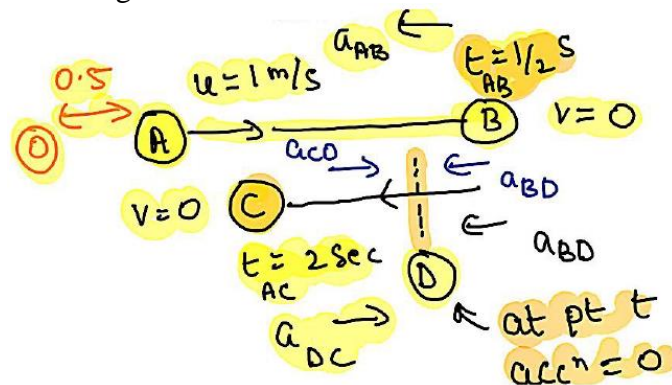 a AB
0.5
u = 1 m/s
t AB = 1/2 s
O
A
B
V = 0
a CD
a BD
V = 0
C
a BD
t AC = 2 Sec
D
a DC
at pt t
accⁿ = 0